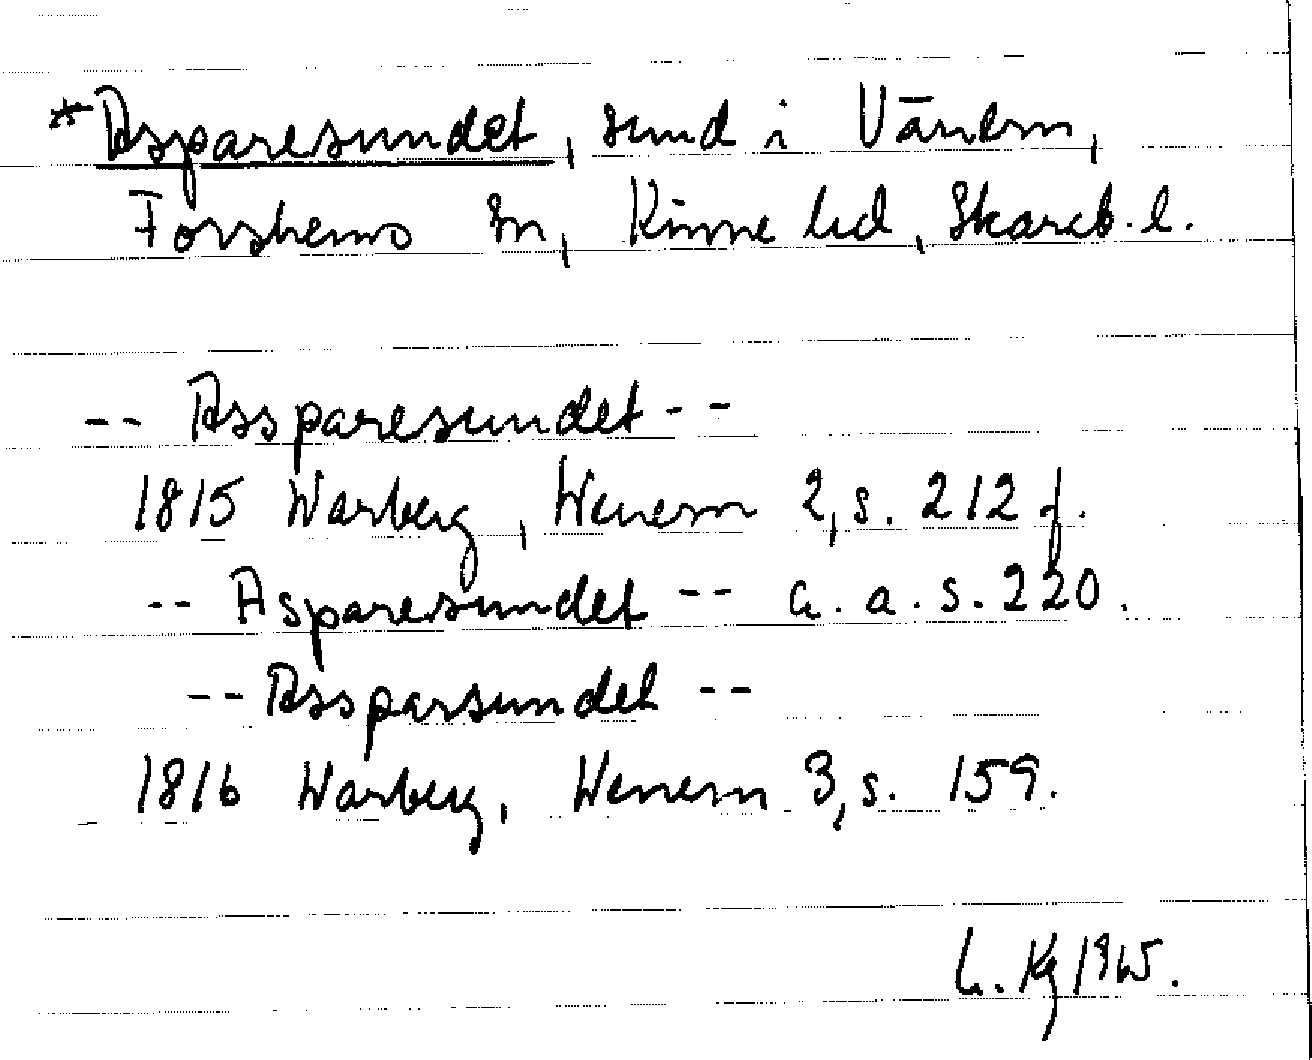 *Asparesundet, sund i Vänern,
Forshems sn, Kinne hd, Skarab. l.
-- Assparesundet --
1815 Warberg, Wenern 2, s. 212 f.
-- Asparesundet -- a. a. s. 220.
-- Assparsundet --
1816 Warberg, Wenern 3, s. 159.
Kg 1965.